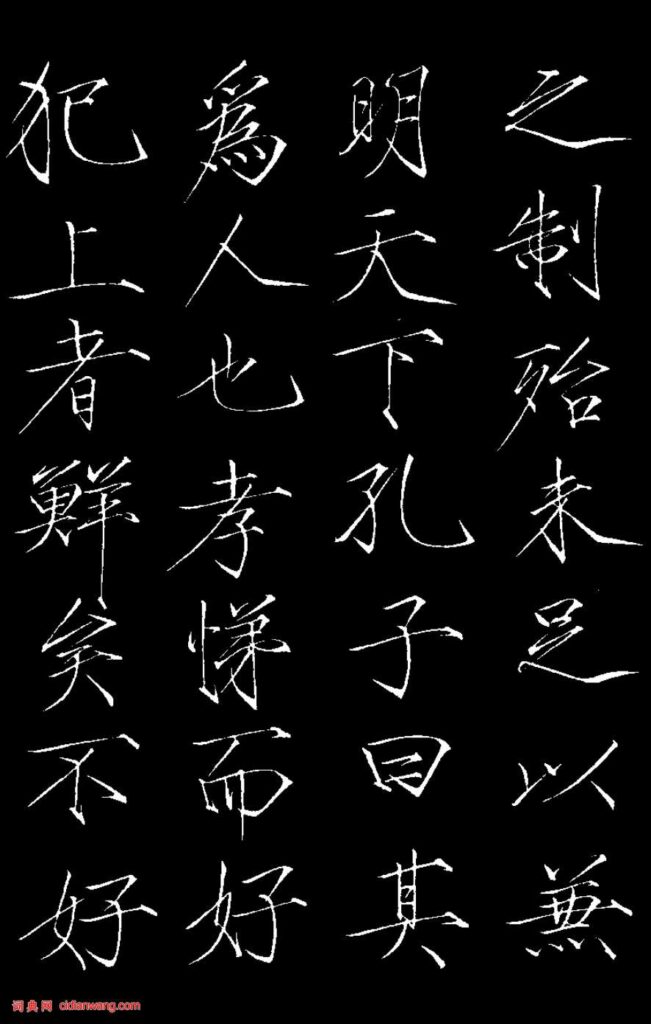 之制殆未足以兼
明天下孔子曰其
為人也孝悌而好
犯上者鮮矣不好
词典网 cidianwang.com